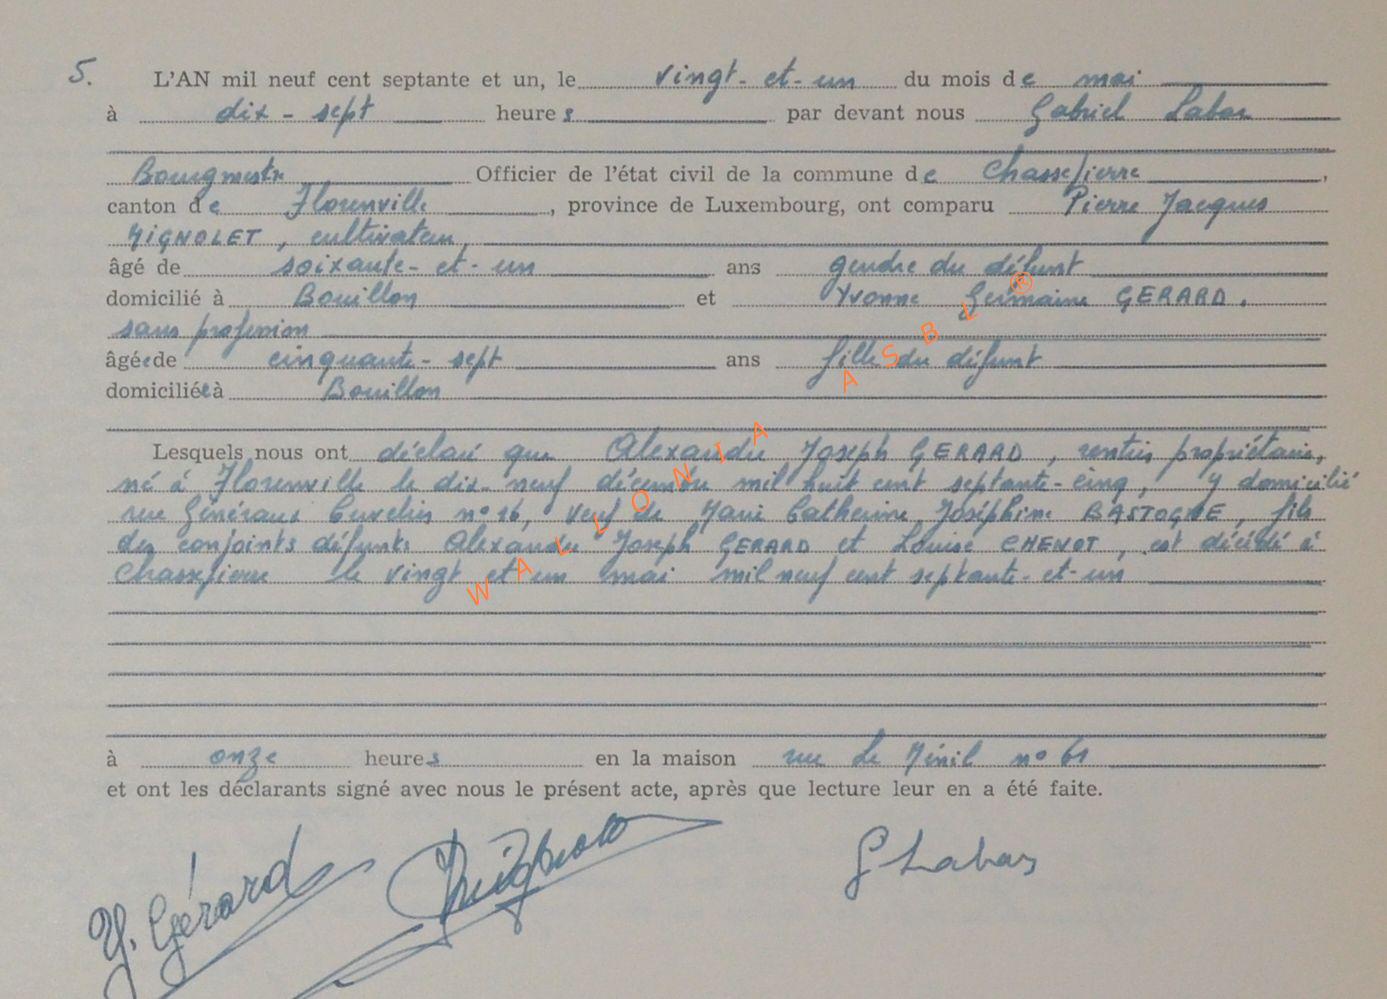 5. L'AN mil neuf cent septante et un, le vingt-et-un du mois de mai
à dix-sept heures par devant nous Gabriel Labas
Bourgmestre Officier de l'état civil de la commune de Chassepierre,
canton de Florenville, province de Luxembourg, ont comparu Pierre Jacques
MIGNOLET, cultivateur,
âgé de soixante-et-un ans gendre du défunt
domicilié à Bouillon et Yvonne Germaine GERARD,
sans profession
âgée de cinquante-sept ans fille du défunt
domiciliée à Bouillon
Lesquels nous ont déclaré que Alexandre Joseph GERARD, rentier propriétaire,
né à Florenville le dix-neuf décembre mil huit cent septante-cinq, y domicilié
rue Généraux Cuvelier n° 16, veuf de Marie Catherine Joséphine BASTOGNE, fils
des conjoints défunts Alexandre Joseph GERARD et Louise CHENOT, est décédé à
Chassepierre le vingt et un mai mil neuf cent septante-et-un
à onze heures en la maison rue le Ménil n° 61
et ont les déclarants signé avec nous le présent acte, après que lecture leur en a été faite.
Y. Gérard Mignolet G Labas
WALLONIA ASBL ®